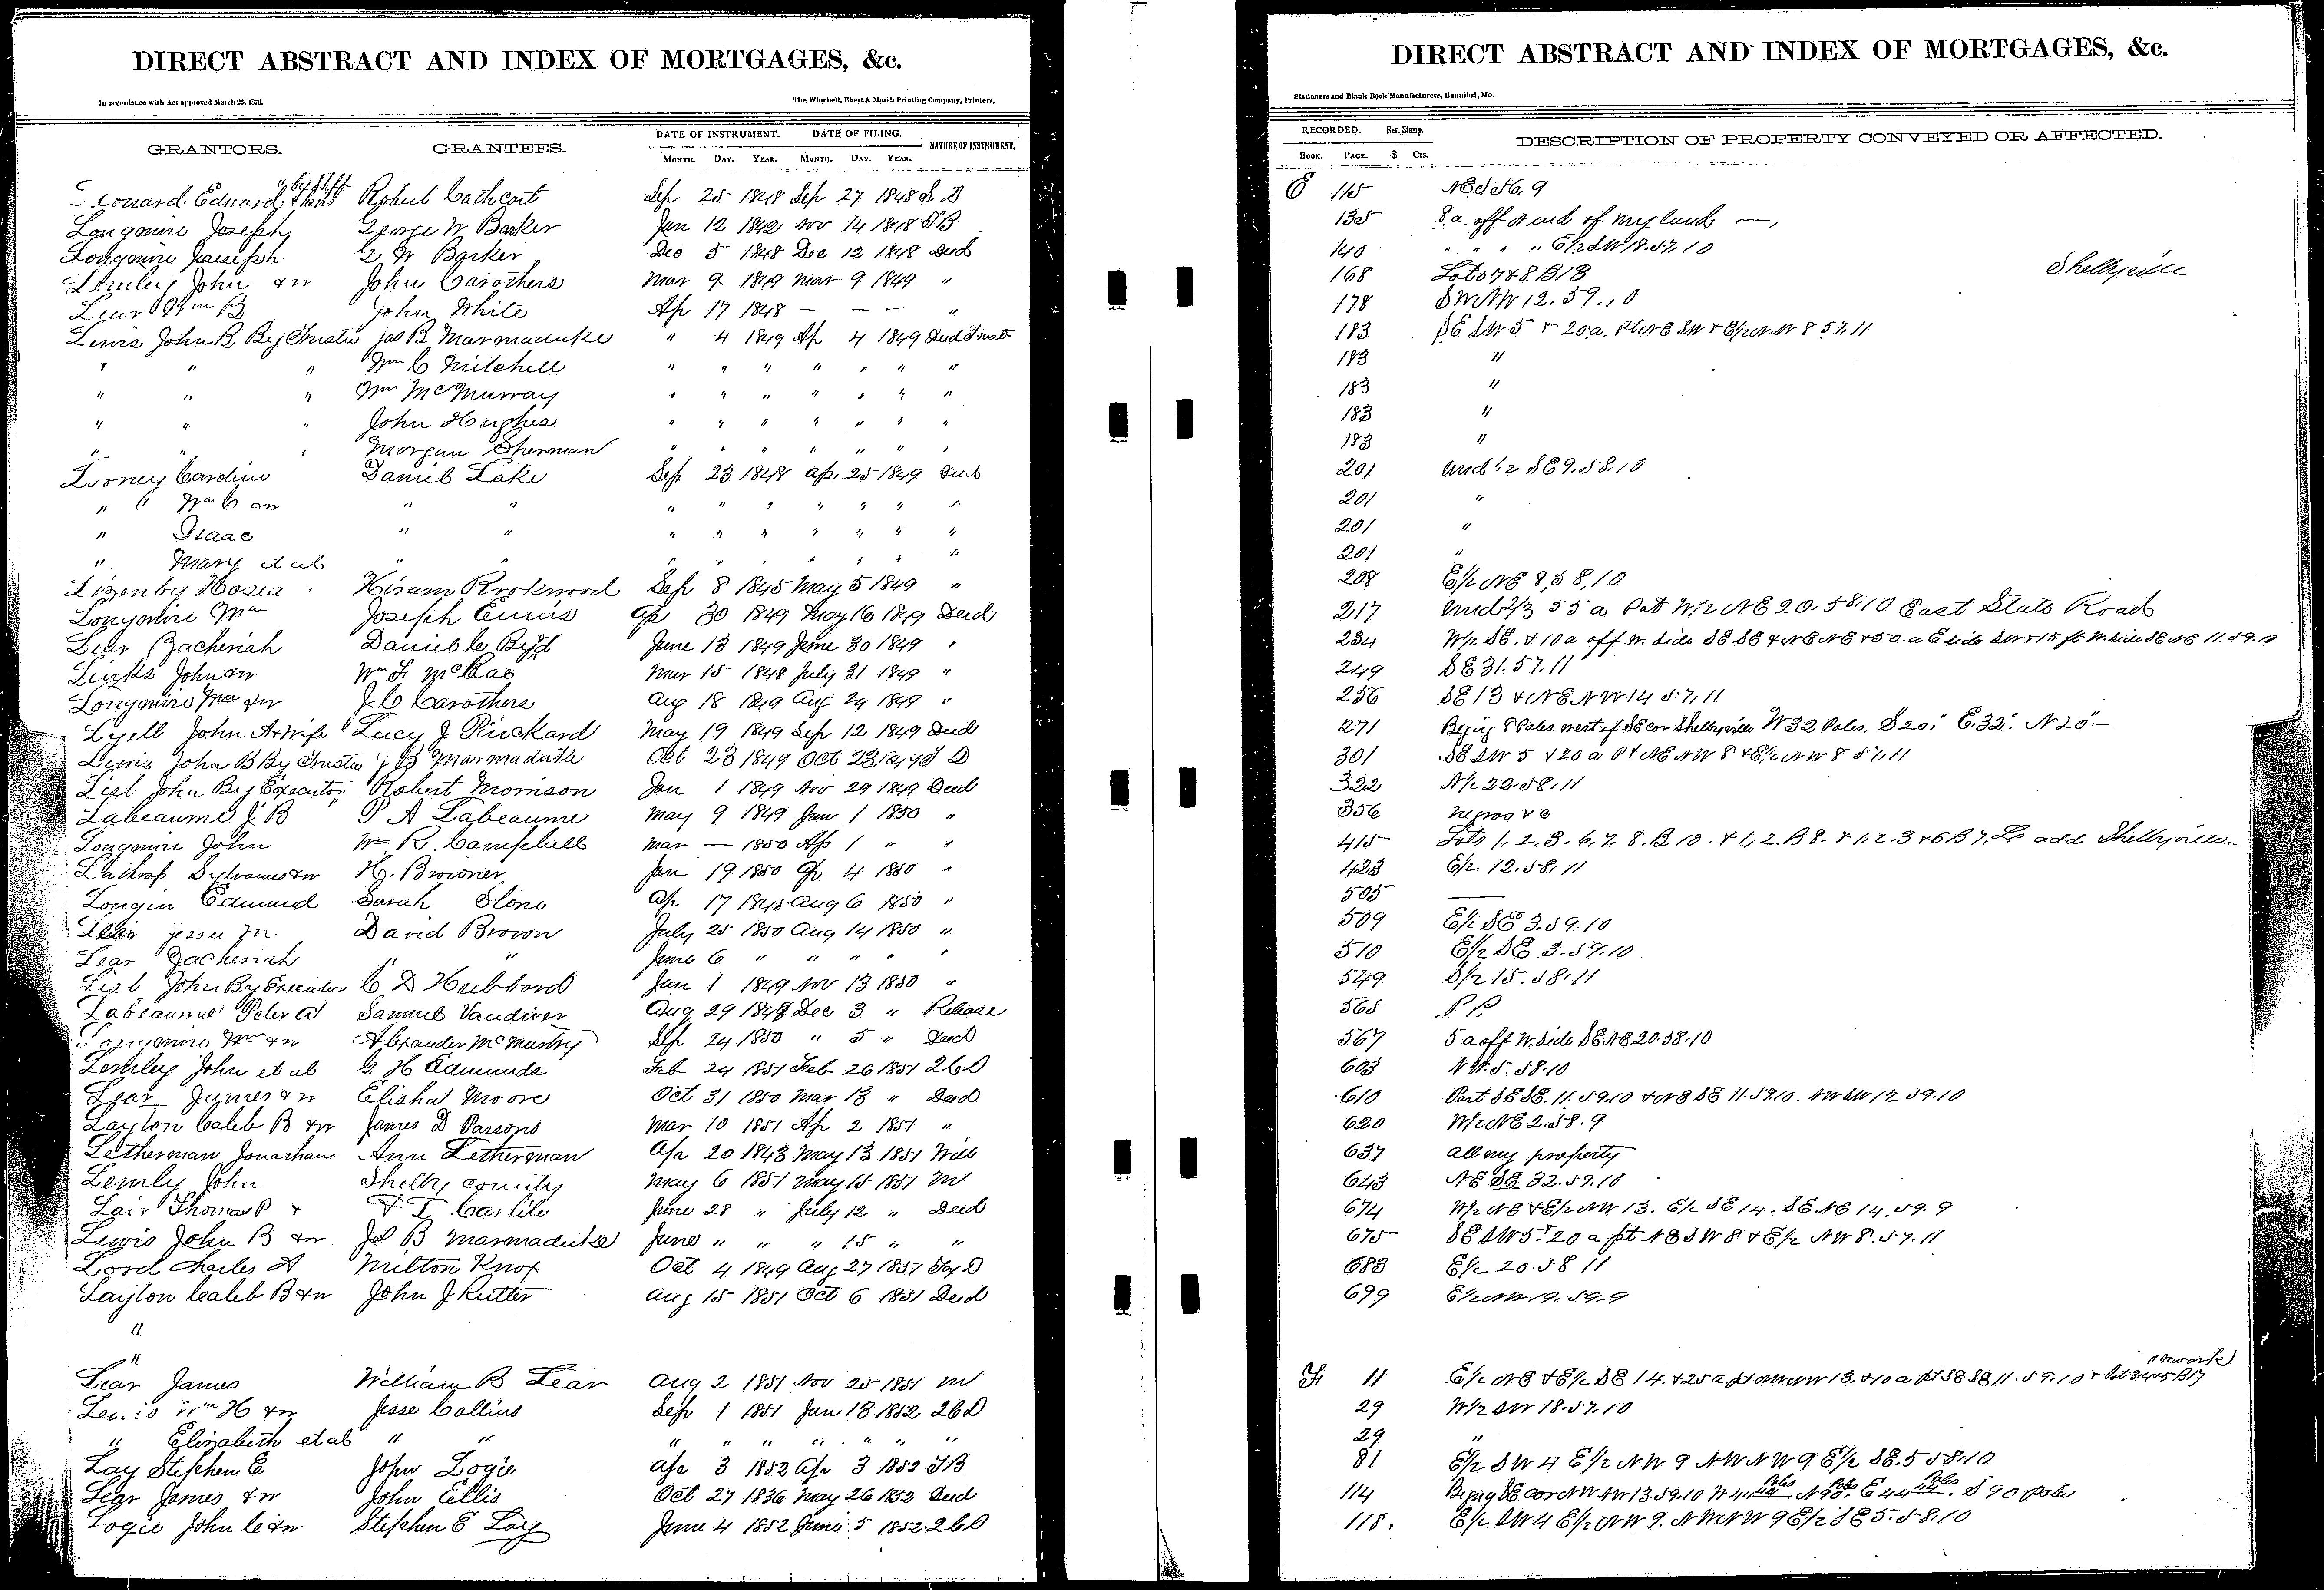 DIRECT ABSTRACT AND INDEX OF MORTGAGES, &c.
In accordance with Act approved March 25, 1870. The Winchell, Ebert & Marsh Printing Company, Printers,
GRANTORS. GRANTEES. DATE OF INSTRUMENT. DATE OF FILING. NATURE OF INSTRUMENT.
MONTH. DAY. YEAR. MONTH. DAY. YEAR.
Leonard Edward by Shff Robert Cathcart Sep 25 1848 Sep 27 1848 S. D
Longmire Joseph George W Barker Jan 12 1842 Nov 14 1848 TB
Longmire Joseph G W Barker Dec 5 1848 Dec 12 1848 Deed
Lemley John & w John Carothers Mar 9 1849 Mar 9 1849 "
Lear Wm B John White Ap 17 1848 — — — "
Lewis John B By Trustee Jas B Marmaduke " 4 1849 Ap 4 1849 Deed Trust
" " " Wm C Mitchell " " " " " " "
" " " Wm McMurray " " " " " " "
" " " John Hughes " " " " " " "
" " " Morgan Sherman " " " " " " "
Looney Caroline Daniel Lake Sep 23 1848 Ap 25 1849 Deed
" Wm C " " " " " " " " "
" Isaac " " " " " " " " "
" Mary et al " " " " " " " " "
Lizenby Hosea Hiram Rookwood Sep 8 1845 May 5 1849 "
Longmire Wm Joseph Ennis Ap 30 1849 May 16 1849 Deed
Lear Zacheriah Daniel C Byrd June 13 1849 June 30 1849 "
Links John & w Wm F McCae Mar 15 1848 July 31 1849 "
Longmire Wm & w J. C Carothers Aug 18 1849 Aug 24 1849 "
Lyell John A & Wife Lucy J Rinckard May 19 1849 Sep 12 1849 Deed
Lewis John B By Trustee J B Marmaduke Oct 23 1849 Oct 23 1849 T D
List John By Executor Robert Morrison Jan 1 1849 Nov 29 1849 Deed
Labeaume J B P A Labeaume May 9 1849 Jan 1 1850 "
Longmire John Wm R. Campbell Mar — 1850 Ap 1 " "
Lathrop Sylvanus & w H. Browner Jan 19 1850 Ap 4 1850 "
Longin Edmund Sarah Slone Ap 17 1845 Aug 6 1850 "
Lear Jesse Jn. David Brown July 25 1850 Aug 14 1850 "
Lear Zacheriah " June 6 " " " " "
List John By Executor C D Hubbard Jan 1 1849 Nov 13 1850 "
Labeaume Peter A Samuel Vandiver Aug 29 1848 Dec 3 " Release
Longmire Wm & w Alexander McMurtry Sep 24 1850 " 5 " Deed
Lemley John et al G H Edmunds Feb 24 1851 Feb 26 1851 2 C D
Lear James & w Elisha Moore Oct 31 1850 Mar 13 " Deed
Layton Caleb B & w James D Parsons Mar 10 1851 Ap 2 1851 "
Letherman Jonathan Ann Letherman Ap 20 1843 May 13 1851 Will
Lemly John Shelby County May 6 1851 May 15 1851 M
Lair Thomas P & F. T. Carlile June 28 " July 12 " Deed
Lewis John B & w. Jas B Marmaduke June " " " 15 " "
Lord Charles A Milton Knox Oct 4 1849 Aug 27 1851 Tax D
Layton Caleb B & w John J Rutter Aug 15 1851 Oct 6 1851 Deed
"
"
Lear James William B Lear Aug 2 1851 Nov 25 1851 M
Lewis Wm H & w Jesse Collins Sep 1 1851 Jan 13 1852 2 C D
" Elizabeth et al " " " " " " " " "
Lay Stephen E John Logie Ap 3 1852 Ap 3 1852 TB
Lear James & w John Ellis Oct 27 1836 May 26 1852 Deed
Logie John C & w Stephen E Lay June 4 1852 June 5 1852 2 C D
DIRECT ABSTRACT AND INDEX OF MORTGAGES, &c.
Stationers and Blank Book Manufacturers, Hannibal, Mo.
RECORDED. Rev. Stamp. DESCRIPTION OF PROPERTY CONVEYED OR AFFECTED.
BOOK. PAGE. $ Cts.
E 115
135 8 a. off N end of my land
140 " " " " E½ SW 18.57.10
168 Lots 7 & 8 B 18 Shelbyville
178 SW NW 12.59.10
183 SE SW 5 & 20 a. Pt NE SW & E½ NW 8 57.11
183 "
183 "
183 "
183 "
201 und ½ SE 9.58.10
201 "
201 "
201 "
208 E½ NE 8.58.10
217 und ⅔ 55 a Pt W½ NE 20.58.10 East State Road
234 W½ SE. & 10 a off W. side SE SE & NE NE & 50. a E side SW & 15 ft W. side SE NE 11.59.10
249 SE 31.57.11
256 SE 13 & NE NW 14 57.11
271 Beging 8 Poles west of SE cor Shelbyville W 32 Poles. S 20: E 32: N 20 —
301 SE SW 5 & 20 a Pt NE NW 8 & E½ NW 8 57.11
322 N½ 22.58.11
356 negros & c
415 Lots 1, 2, 3. 6. 7. 8. B 10. & 1, 2 B 8. & 1. 2. 3 & 6 B 7. Ls add Shelbyville
423 E½ 12.58.11
505 ——
509 E½ SE 3.59.10
510 E½ SE 3.59.10
549 S½ 15.58.11
565 P P.
567 5 a off W. side SE NE 20.58.10
603 NW. 5.58.10
610 Part SE SE. 11.59.10 & NE SE 11.59.10. NW SW 12 59.10
620 W½ NE 2.58.9
637 all my property
643 NE SE 32.59.10
674 W½ NE & E½ NW 13. E½ SE 14. SE NE 14.59.9
675 SE SW 5. 20 a pt NE SW 8 & E½ NW 8.57.11
683 E½ 20.58 11
699 E½ NW 19.59.9
F 11 E½ NE & E½ SE 14. & 25 a pt NW NW 13. & 10 a pt SE SE 11.59.10 & Lot 3 & 4 & 5 B 17 (Newark)
29 W½ SW 18.57.10
29 "
81 E½ SW 4 E½ NW 9 NW NW 9 E½ SE. 5 58.10
114 Beging SE cor NW NW 13.59.10 W 44 Poles N 90 Poles. E 44 Poles. S 90 poles
118. E½ SW 4 E½ NW 9. NW NW 9 E½ SE 5.58.10